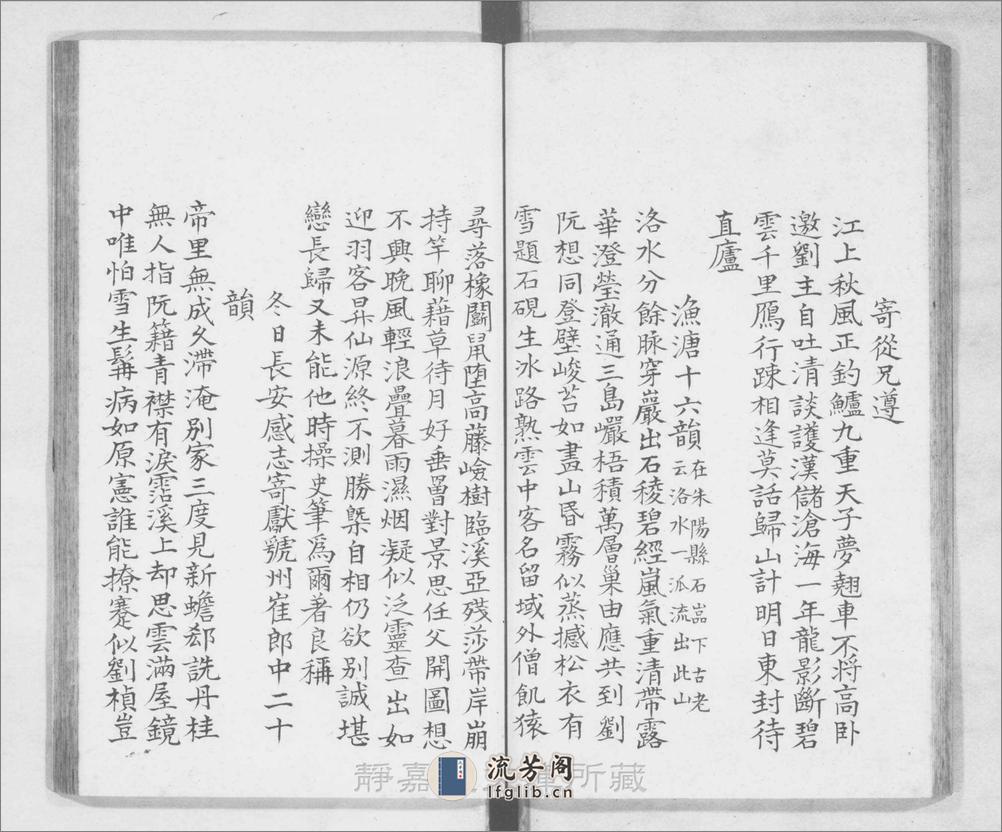 寄從兄遵
江上秋風正釣鱸九重天子夢翹車不將高臥
邀劉主自吐清談護漢儲滄海一年龍影斷碧
雲千里鴈行踈相逢莫話歸山計明日東封待
直廬
漁溏十六韻在朱陽縣石嵓下古老
云洛水一泒流出此山
洛水分餘脉穿巖出石稜碧經嵐氣重清帶露
華澄瑩澈通三島巖梧積萬層巢由應共到劉
阮想同登壁峻苔如畫山昏霧似蒸撼松衣有
雪題石硯生冰路熟雲中客名留域外僧飢猿
尋落橡鬬鼠墮高藤嶮樹臨溪亞殘莎帶岸崩
持竿聊藉草待月好垂罾對景思任父開圖想
不興晚風輕浪疊暮雨濕烟凝似泛靈查出如
迎羽客昇仙源終不測勝槩自相仍欲別誠堪
戀長歸又未能他時操史筆爲爾著良稱
冬日長安感志寄獻虢州崔郎中二十
韻
帝里無成久滯淹別家三度見新蟾郄詵丹桂
無人指阮籍青襟有淚霑溪上却思雲滿屋鏡
中唯怕雪生髯病如原憲誰能撩蹇似劉楨豈
靜嘉 所藏
流芳阁
lfglib.cn